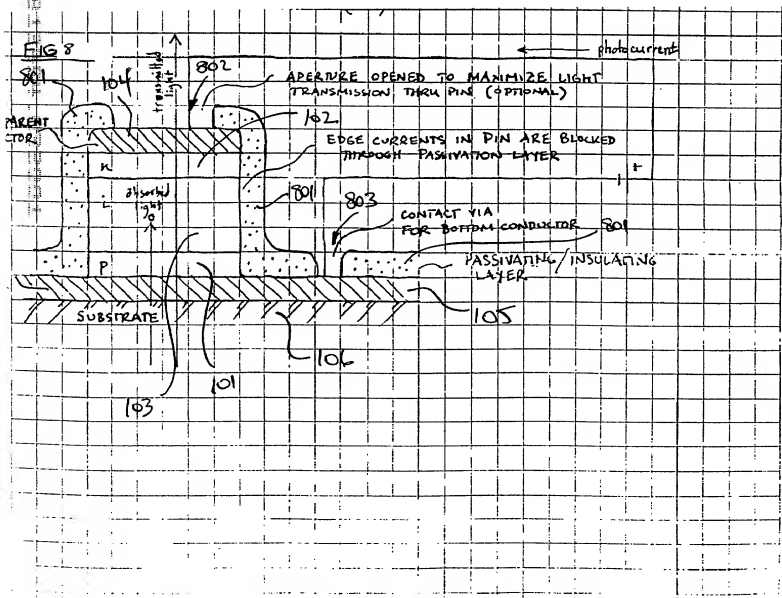 FIG 8
photocurrent
801
104
transmitted
light
802
APERTURE OPENED TO MAXIMIZE LIGHT
TRANSMISSION THRU PIN (OPTIONAL)
PARENT
CTOR
102
EDGE CURRENTS IN PIN ARE BLOCKED
THROUGH PASSIVATION LAYER
n
+
absorbed
light
i
801
803
CONTACT VIA
FOR BOTTOM CONDUCTOR
801
P
PASSIVATING/INSULATING
LAYER
SUBSTRATE
105
106
101
103